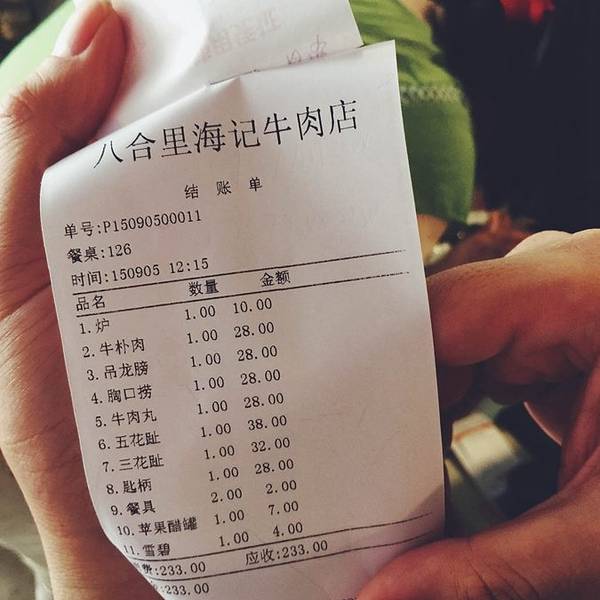 八合里海记牛肉店
结 账 单
单号:P15090500011
餐桌:126
时间:150905 12:15
品名 数量 金额
1.炉 1.00 10.00
2.牛朴肉 1.00 28.00
3.吊龙膀 1.00 28.00
4.胸口捞 1.00 28.00
5.牛肉丸 1.00 28.00
6.五花趾 1.00 38.00
7.三花趾 1.00 32.00
8.匙柄 1.00 28.00
9.餐具 2.00 2.00
10.苹果醋罐 1.00 7.00
11.雪碧 1.00 4.00
费:233.00 应收:233.00
:233.00